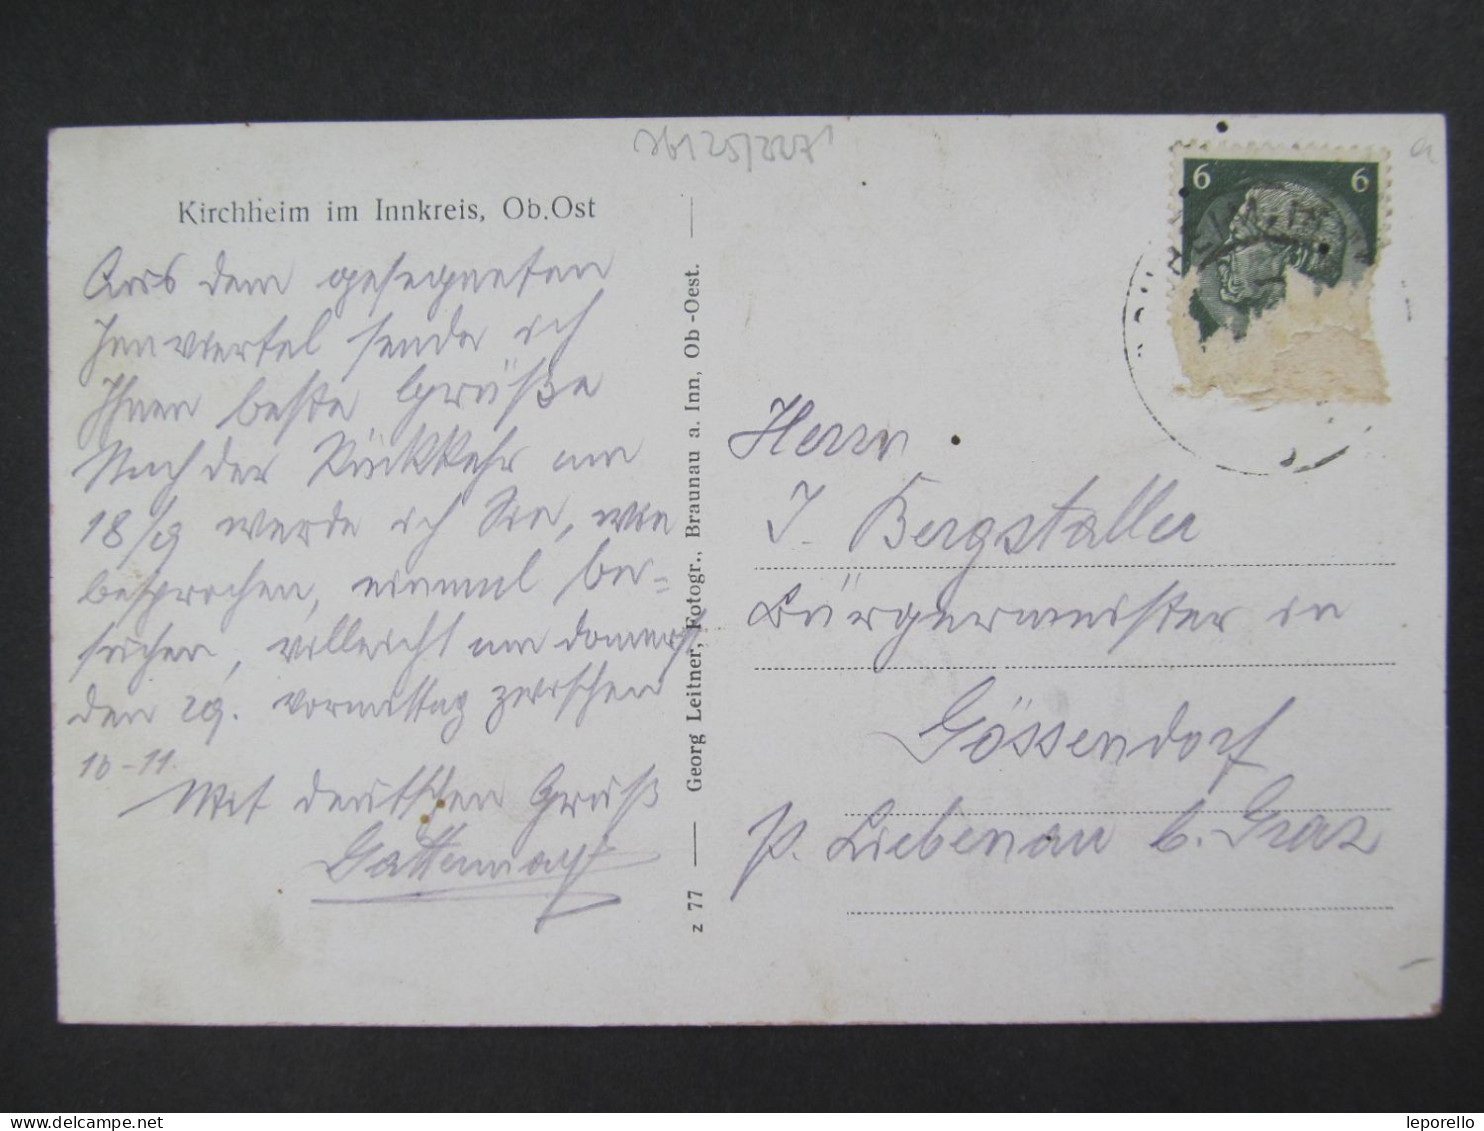 Kirchheim im Innkreis, Ob.Ost
Aus dem gesegneten
Innviertel sende ich
Ihnen beste Grüße
Nach der Rückkehr am
18/9 werde ich Sie, wie
besprochen, einmal be-
suchen, vielleicht am Donnerst
den 29. vormittag zwischen
10-11.
Mit deutschen Gruß
z 77 — Georg Leitner, Fotogr., Braunau a. Inn, Ob-Oest. —
6 6
Herrn
J. Bergstaller
Bürgermeister in
Gössendorf
p. Liebenau b. Graz
leporello